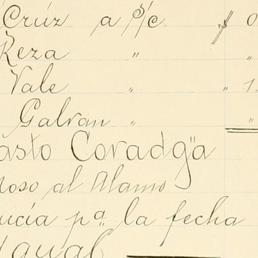 Crúz a p/c $ 0
Reza " "
Vale " " 1
Galvan "
asto Coradgª
moso al Alamo
ucía pª la fecha
Igual